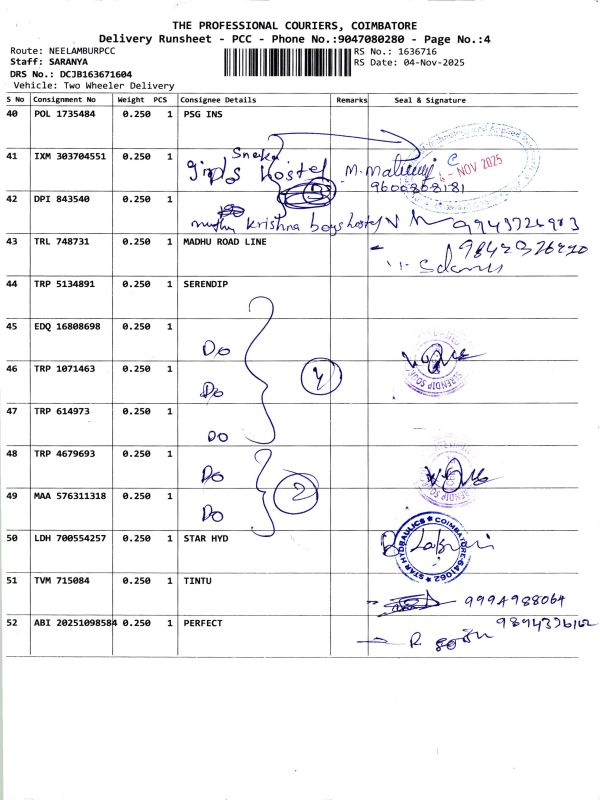 THE PROFESSIONAL COURIERS, COIMBATORE
Delivery Runsheet - PCC - Phone No.:9047080280 - Page No.:4
Route: NEELAMBURPCC
RS No.: 1636716
Staff: SARANYA
RS Date: 04-Nov-2025
DRS No.: DCJB163671604
Vehicle: Two Wheeler Delivery
S No Consignment No Weight PCS Consignee Details Remarks Seal & Signature
40 POL 1735484 0.250 1 PSG INS
41 IXM 303704551 0.250 1 Sneka
girls hostel
- NOV 2025
9600868181
42 DPI 843540 0.250 1
muthu krishna boys hostel
43 TRL 748731 0.250 1 MADHU ROAD LINE
44 TRP 5134891 0.250 1 SERENDIP
45 EDQ 16808698 0.250 1 Do
46 TRP 1071463 0.250 1 Do
47 TRP 614973 0.250 1 Do
48 TRP 4679693 0.250 1 Do
49 MAA 576311318 0.250 1 Do
2
50 LDH 700554257 0.250 1 STAR HYD
STAR HYDRAULICS ★ COIMBATORE-641062 ★
51 TVM 715084 0.250 1 TINTU
9994988064
52 ABI 20251098584 0.250 1 PERFECT